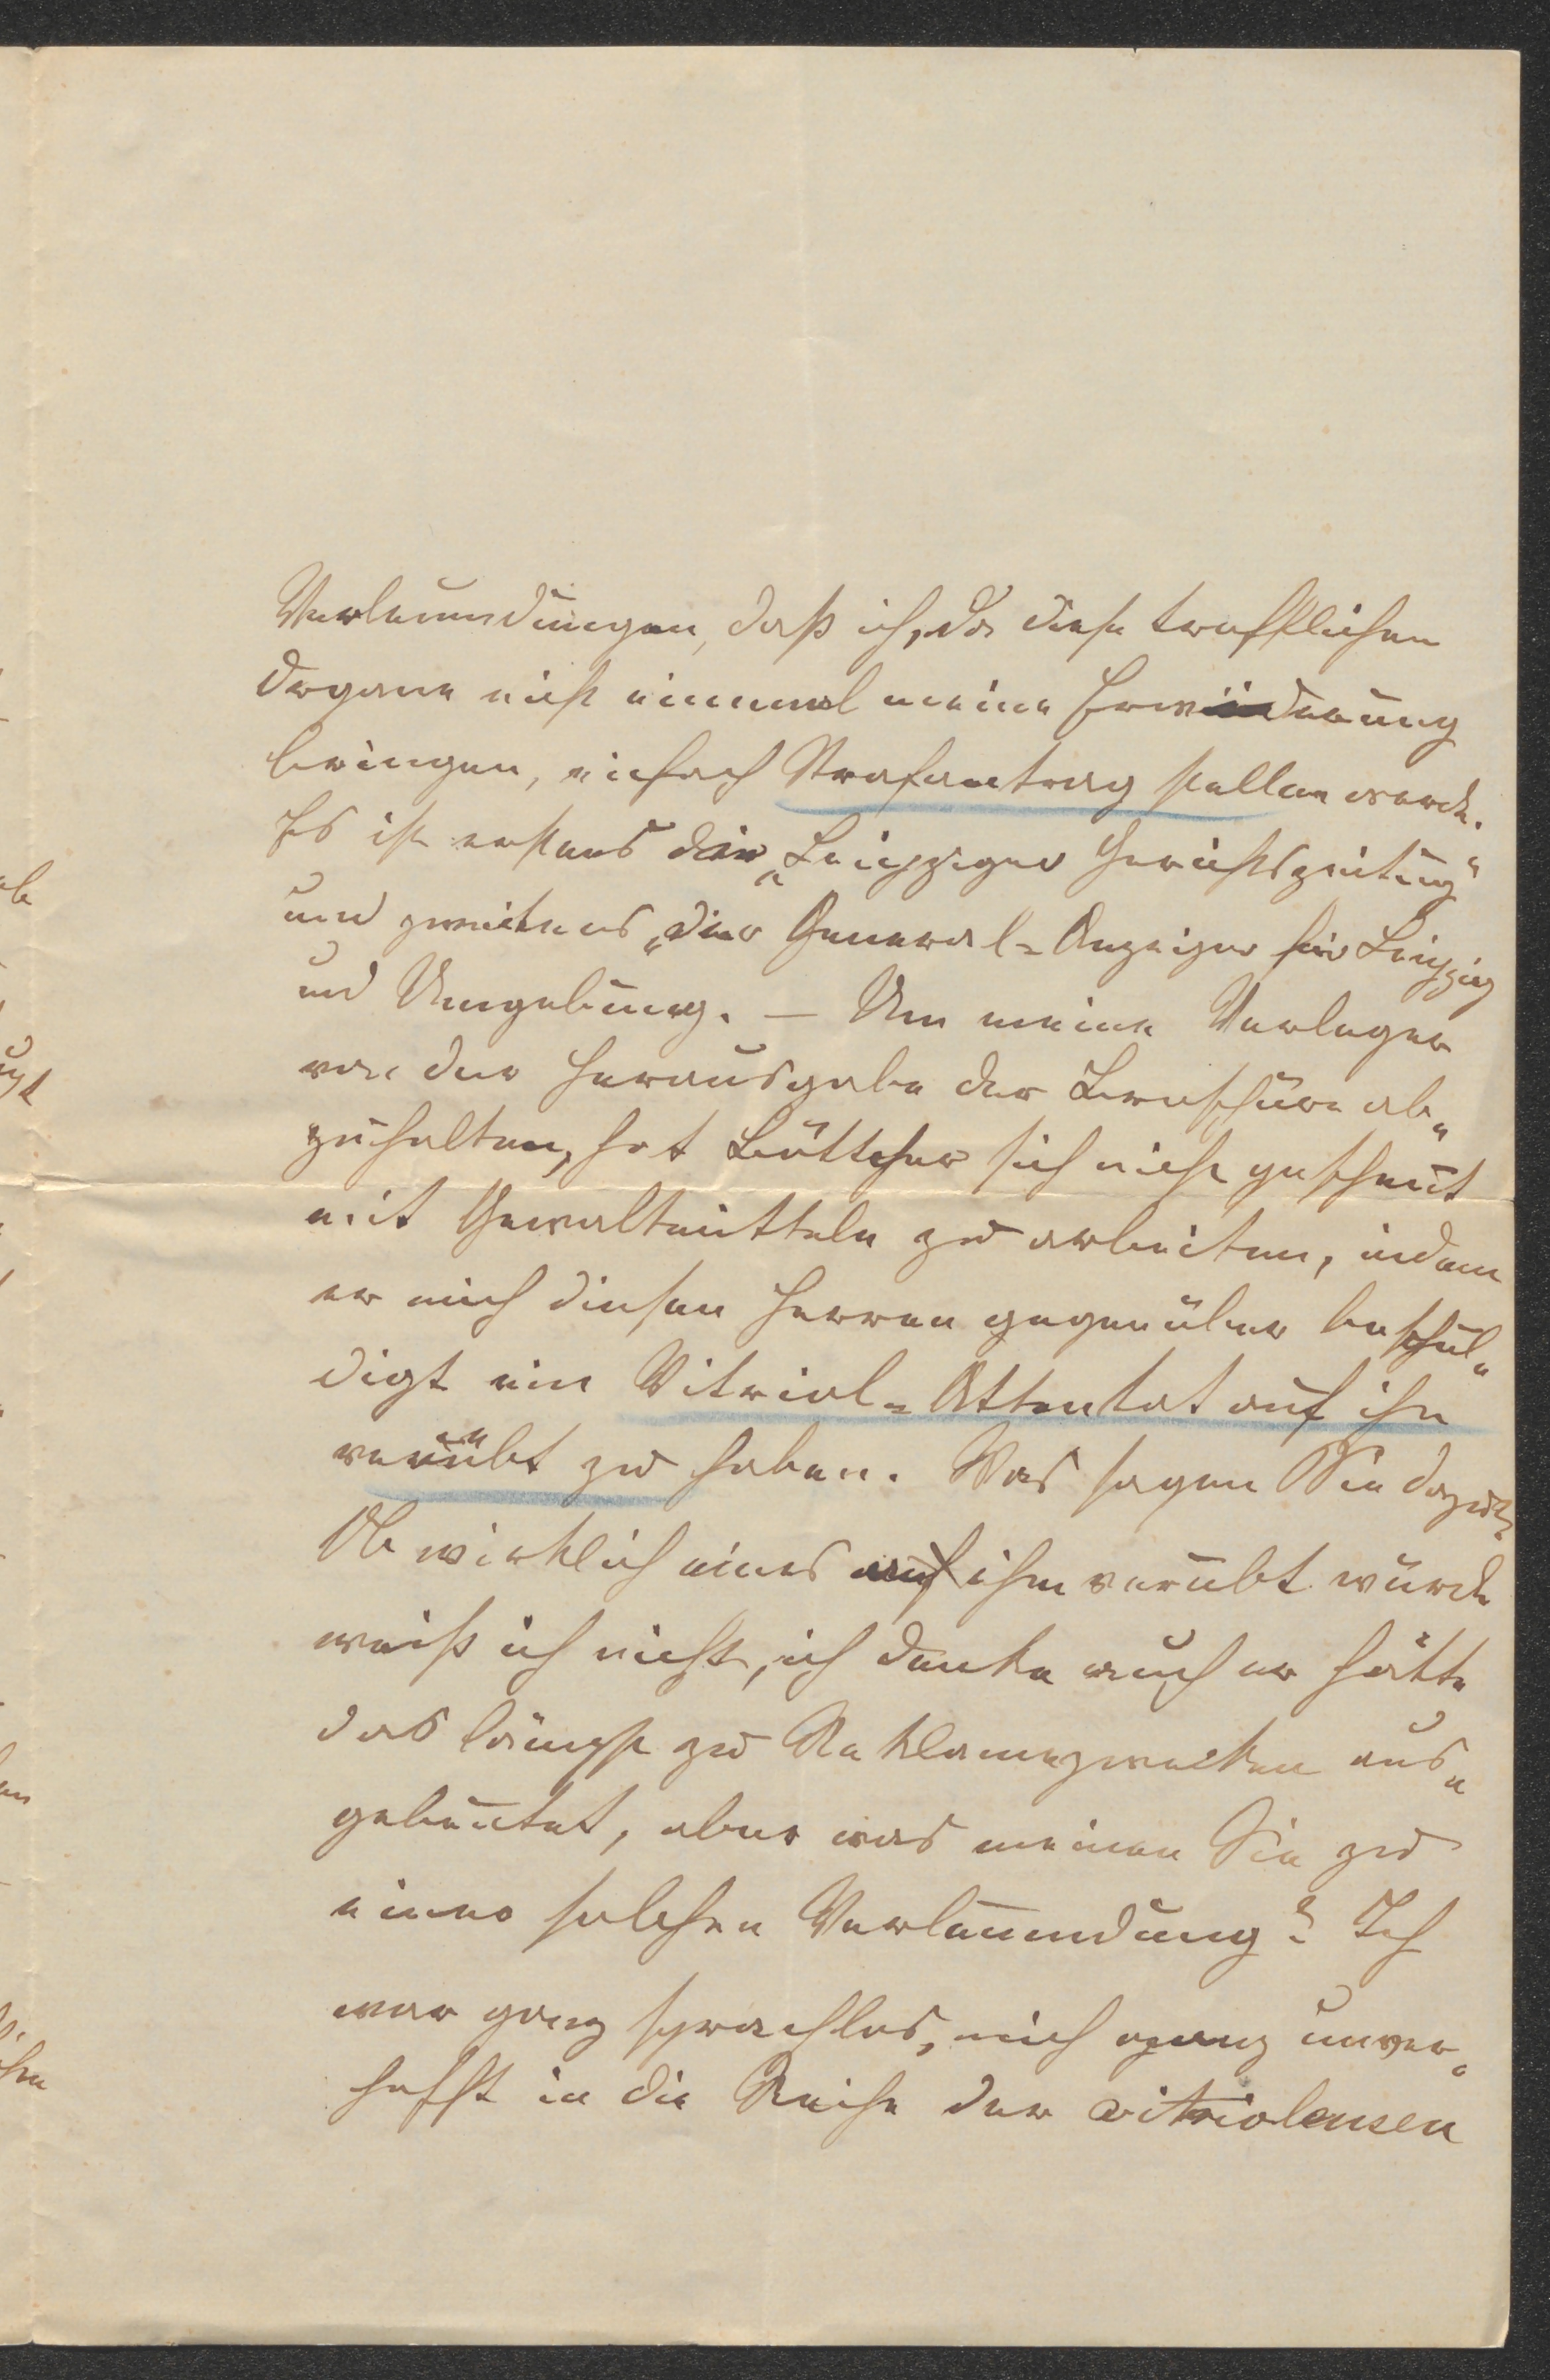 Verleumdungen, daß ich, da diese trefflichen
Organe nicht einmal meine Erwiderung
bringen, einfach Strafantrag stellen werde.
Es ist erstens die „Leipziger Gerichtszeitung“
und zweitens „der General-Anzeiger für Leipzig
und Umgebung. — Um meine Verleger
von der Herausgabe der Broschüre ab-
zuhalten, hat Böttcher sich nicht gescheut
mit Gewaltmitteln zu arbeiten, indem
er mich diesen Herren gegenüber beschul-
digt ein Vitriol-Attentat auf ihn
verübt zu haben. Was sagen Sie dazu?
Ob wirklich eines auf ihn verübt wurde
weiß ich nicht, ich denke auch er hätte
das längst zu Reklamezwecken aus-
gebeutet, aber was meinen Sie zu
einer solchen Verleumdung? Ich
war ganz sprachlos, mich ganz unver-
hofft in die Reihe der vitrioleusen
ab